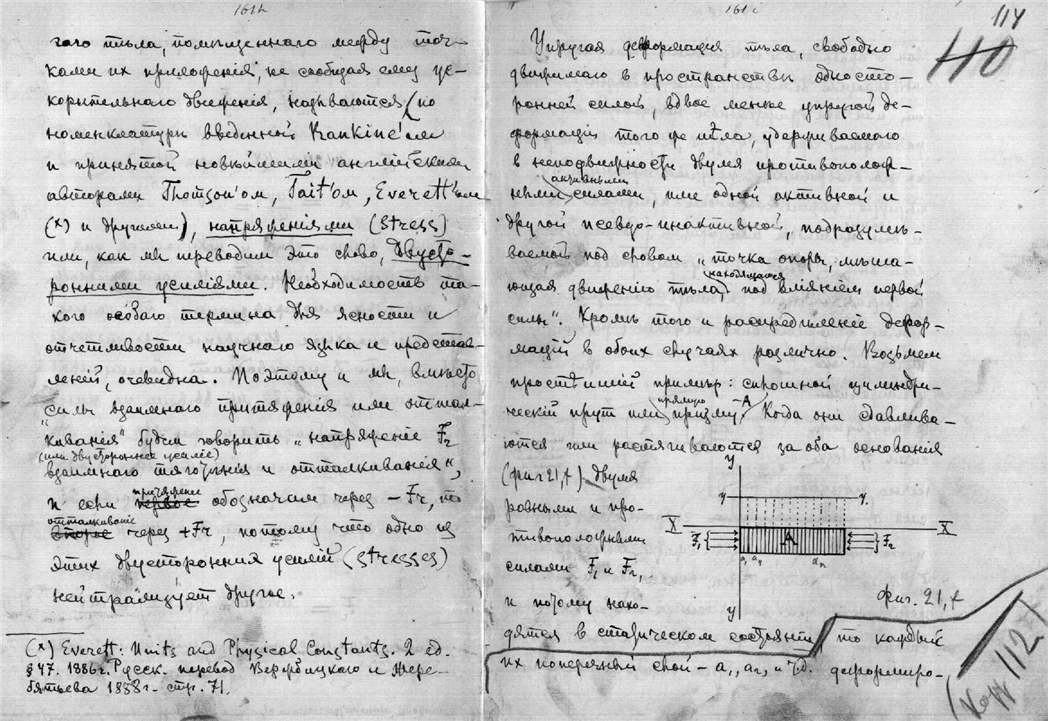 161b
гаго тѣла, помѣщеннаго между точ-
ками их приложенія, не сообщая ему ус-
корительнаго движенія, называются (по
номенклатурѣ введенной Rankine'ом
и принятой новѣйшими англійскими
авторами Thomson'ом, Tait'ом, Everett'ом
(x) и другими), напряженіями (stress)
или, как мы переводим это слово, двусто-
ронними усиліями. Необходимость та-
кого особаго термина для ясности и
отчетливости научнаго языка и представ-
леній, очевидна. Поэтому и мы, вмѣсто
"силы взаимнаго притяженія или оттал-
киванія" будем говорить "напряженіе F₂
(или двустороннее усиліе)
взаимнаго тяготѣнія и отталкиванія",
притяженіе
и если первое обозначим через – Fr, то
отталкиваніе
второе через + Fr, потому что одно из
этих двусторонних усилій (stresses)
нейтрализует другое.
(x) Everett: Units and Physical Constants. 2 ed.
§ 47. 1886г. Русск. перевод Вержбицкаго и Жере-
бятьева 1888г. стр. 71.
161c
114
110
Упругая деформація тѣла, свободно
движимаго в пространствѣ односто-
ронней силой, вдвое меньше упругой де-
формаціи того же тѣла, удерживаемаго
в неподвижности двумя противополож-
активными
ными силами, или одной активной и
другой псевдо-инактивной, подразумѣ-
ваемой под словом "точка опоры, мѣша-
находящагося
ющая движенію тѣла, под вліянием первой
силы". Кромѣ того и распредѣленіе дефор-
мацій в обоих случаях различно. Возьмем
простѣйшій примѣр: сплошной цилиндри-
прямую
ческій прут или призму – A. Когда они сдавлива-
ются или растягиваются за оба основанія
(фиг 21,t) двумя
равными и про-
тивоположными
силами F₁ и F₂,
и потому нахо-
дятся в статическом состояніи то каждый
их поперечный слой – a₁, a₂, и т.д. деформиро-
y
y y,
X X
F₁ A F₂
a₁ a₂ aₙ
y
Фиг. 21,t
112